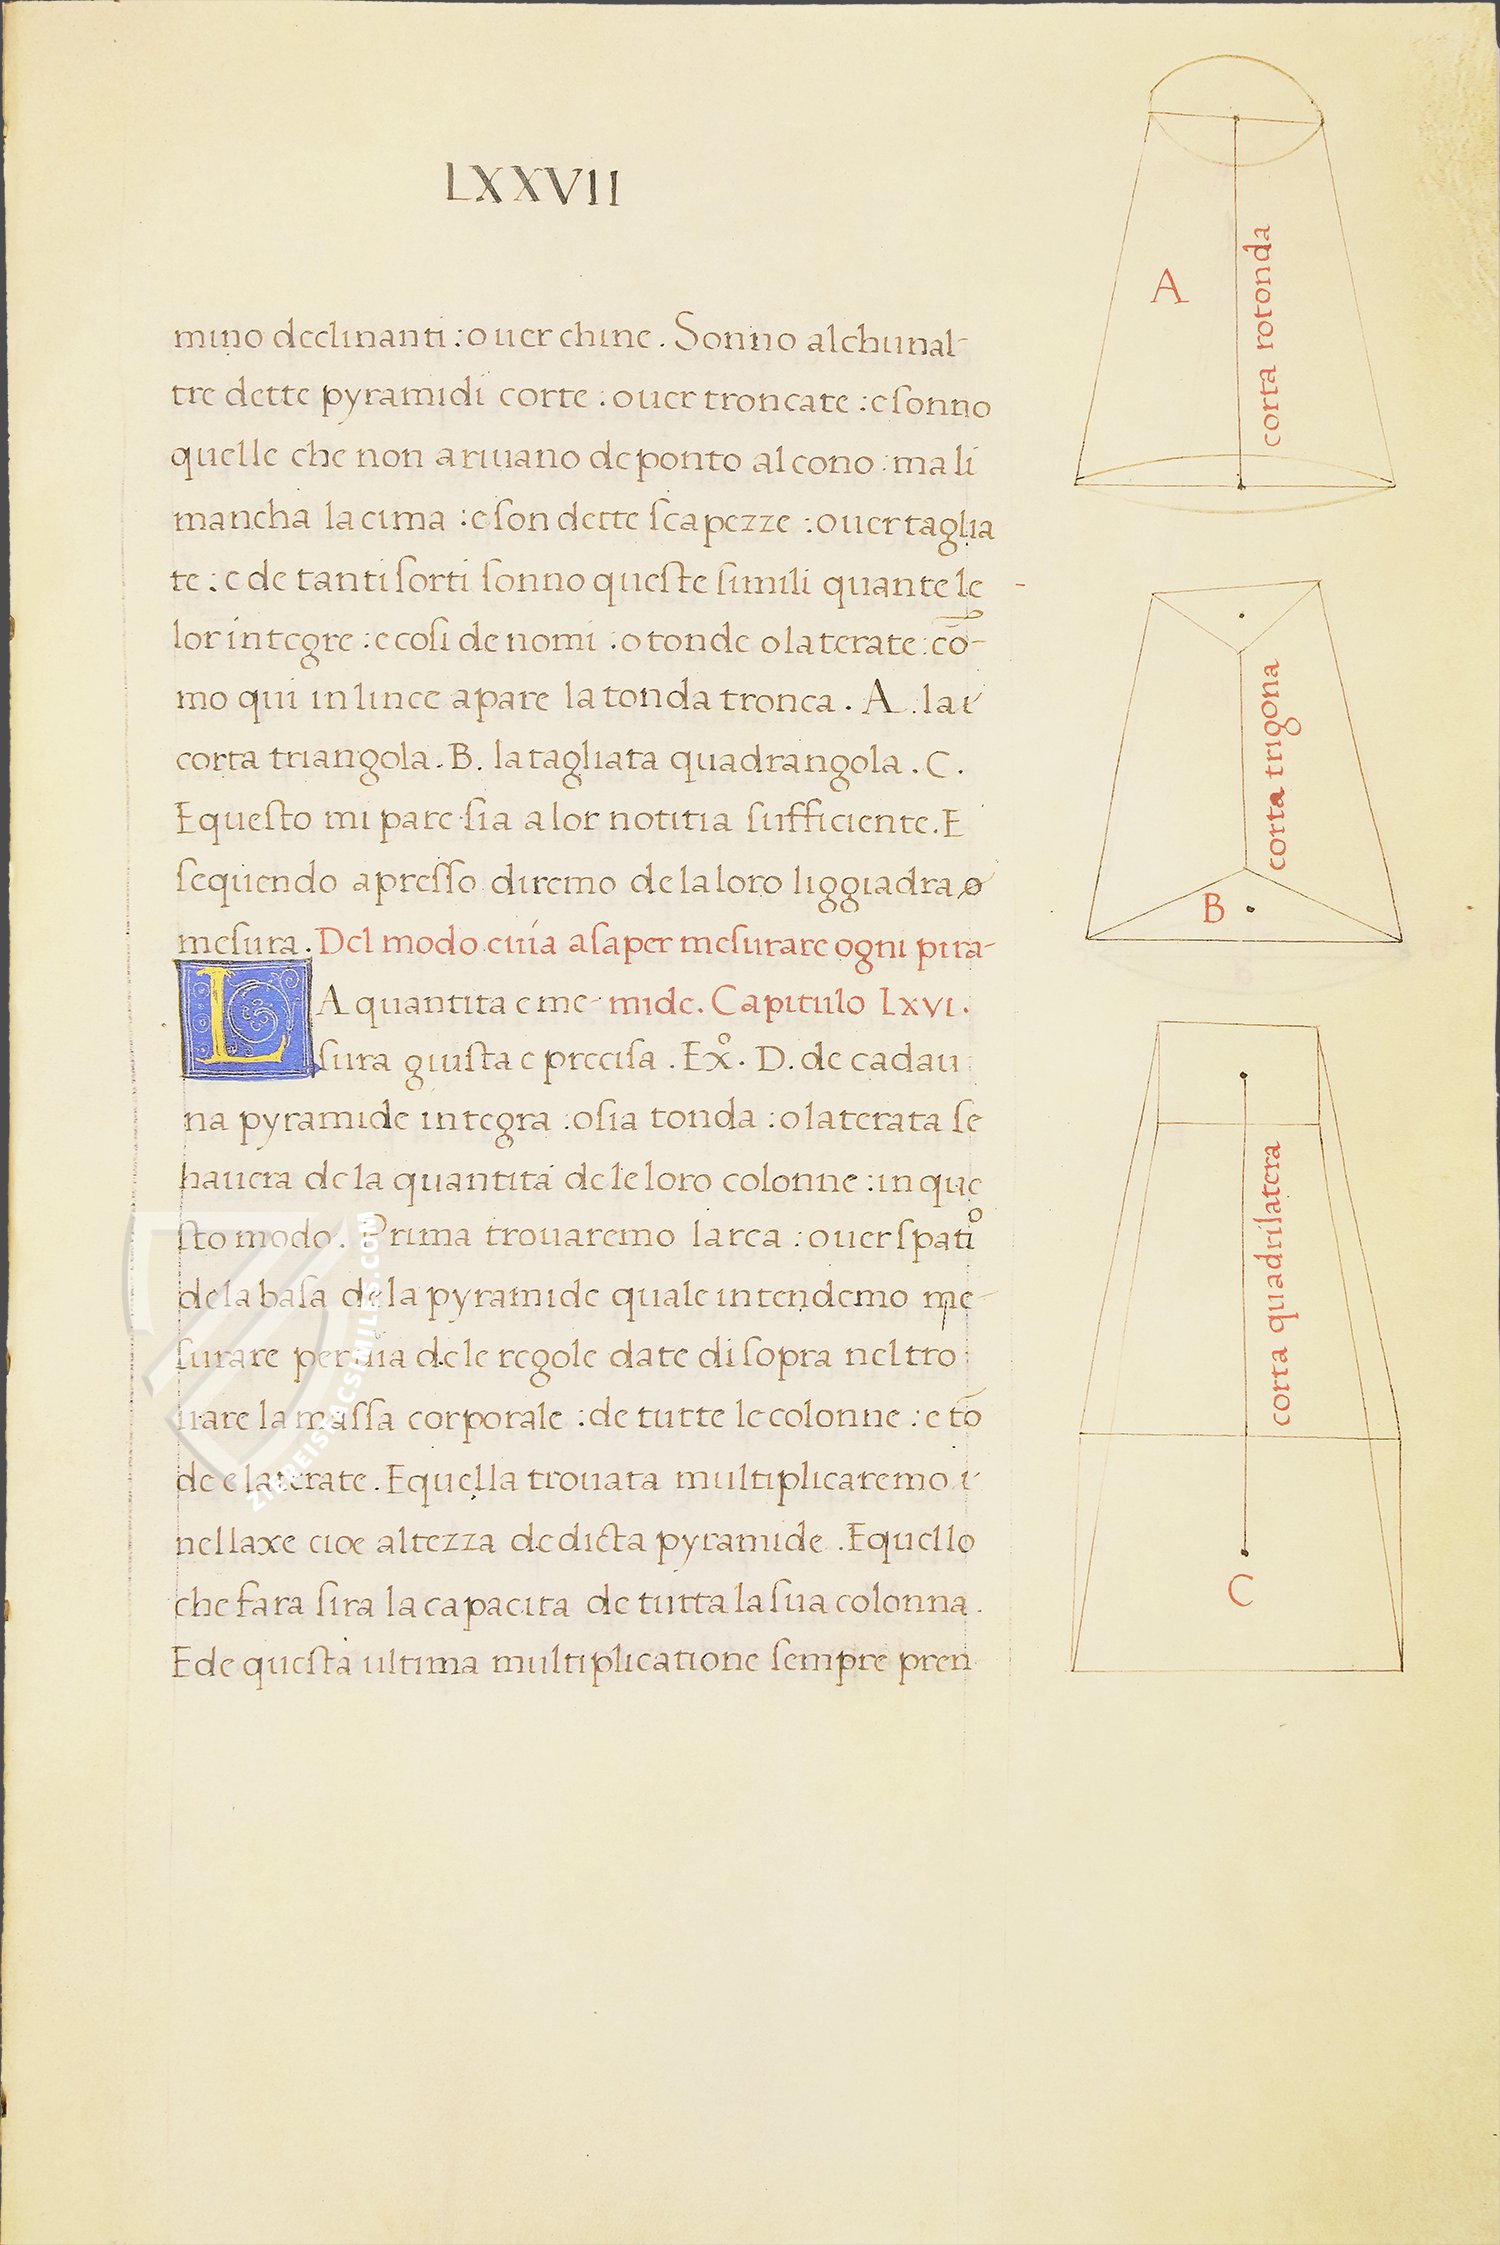 LXXVII
mino declinanti : over chine . Sonno alchunal-
tre dette pyramidi corte : over troncate : e sonno
quelle che non arivano de ponto al cono : ma li
mancha la cima : e son dette scapezze : over taglia
te : e de tanti sorti sonno queste simili quante le
lor integre : e cosi de nomi : o tonde o laterate : cō-
mo qui in linee apare la tonda tronca . A . la
corta triangola . B . la tagliata quadrangola . C .
E questo mi pare sia a lor notitia sufficiente . E
sequendo apresso diremo de la loro liggiadra
mesura . Del modo e via a saper mesurare ogni pira-
LA quantita e me- mide . Capitulo Lxvi .
sura giusta e precisa . Exº . D . de cadau
na pyramide integra : o sia tonda : o laterata se
havera de la quantita de le loro colonne : in que
sto modo . Prima trovaremo larea : over spatiº
de la basa de la pyramide quale intendemo me-
surare per via de le regole date di sopra nel tro
vare la massa corporale : de tutte le colonne : e tō
de e laterate . E quella trovata multiplicaremo
nellaxe cioe altezza de dicta pyramide . E quello
che fara sira la capacita de tutta la sua colonna .
E de questa ultima multiplicatione sempre pren
A
corta rotonda
corta trigona
B
corta quadrilatera
C
ZIEREISFACSIMILES.COM